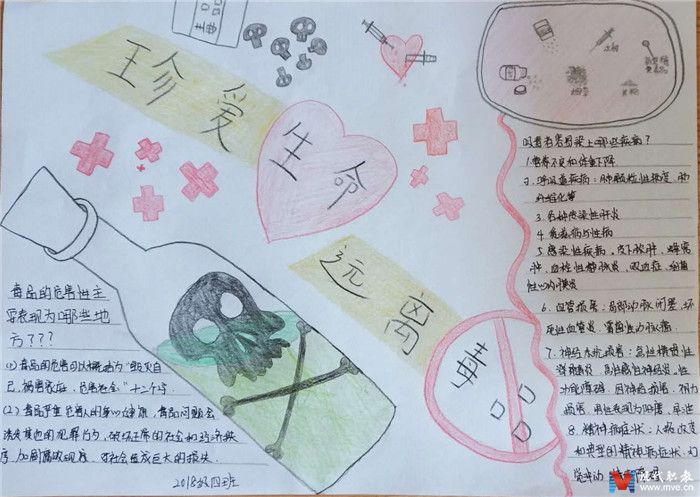 珍爱
生命
远离
毒品
注射
毒品的危害性主
要表现为哪些地
方???
(1)毒品的危害可以概括为"毁灭自
己,祸害家庭,危害社会"十二个字.
(2)毒品严重危害人的身心健康,毒品问题会
诱发其他的犯罪行为,破坏正常的社会和经济秩
序,
对社会造成巨大的损失.
2018级四班
吸毒者易感染上哪些疾病?
1.营养不良和体重下降
2.呼吸道疾病:肺颗粒性病变,肺
纤维化等
3.各种感染性肝炎
4.性病
5.感染性疾病.皮下脓肿,蜂窝
炎,血栓性静脉炎,败血症,细菌
性心内膜炎
6.血管损害:局部动脉闭塞,坏
死性血管炎,霉菌性动脉瘤.
7.神经系统损害:急性横贯性
脊髓炎,急性感性神经炎.性
功能障碍,因神经损害,
损害,男性表现为阳痿,早泄
8.精神病症状:人格改变
和典型的精神病症状,幻
觉
现代职教
www.mve.cn